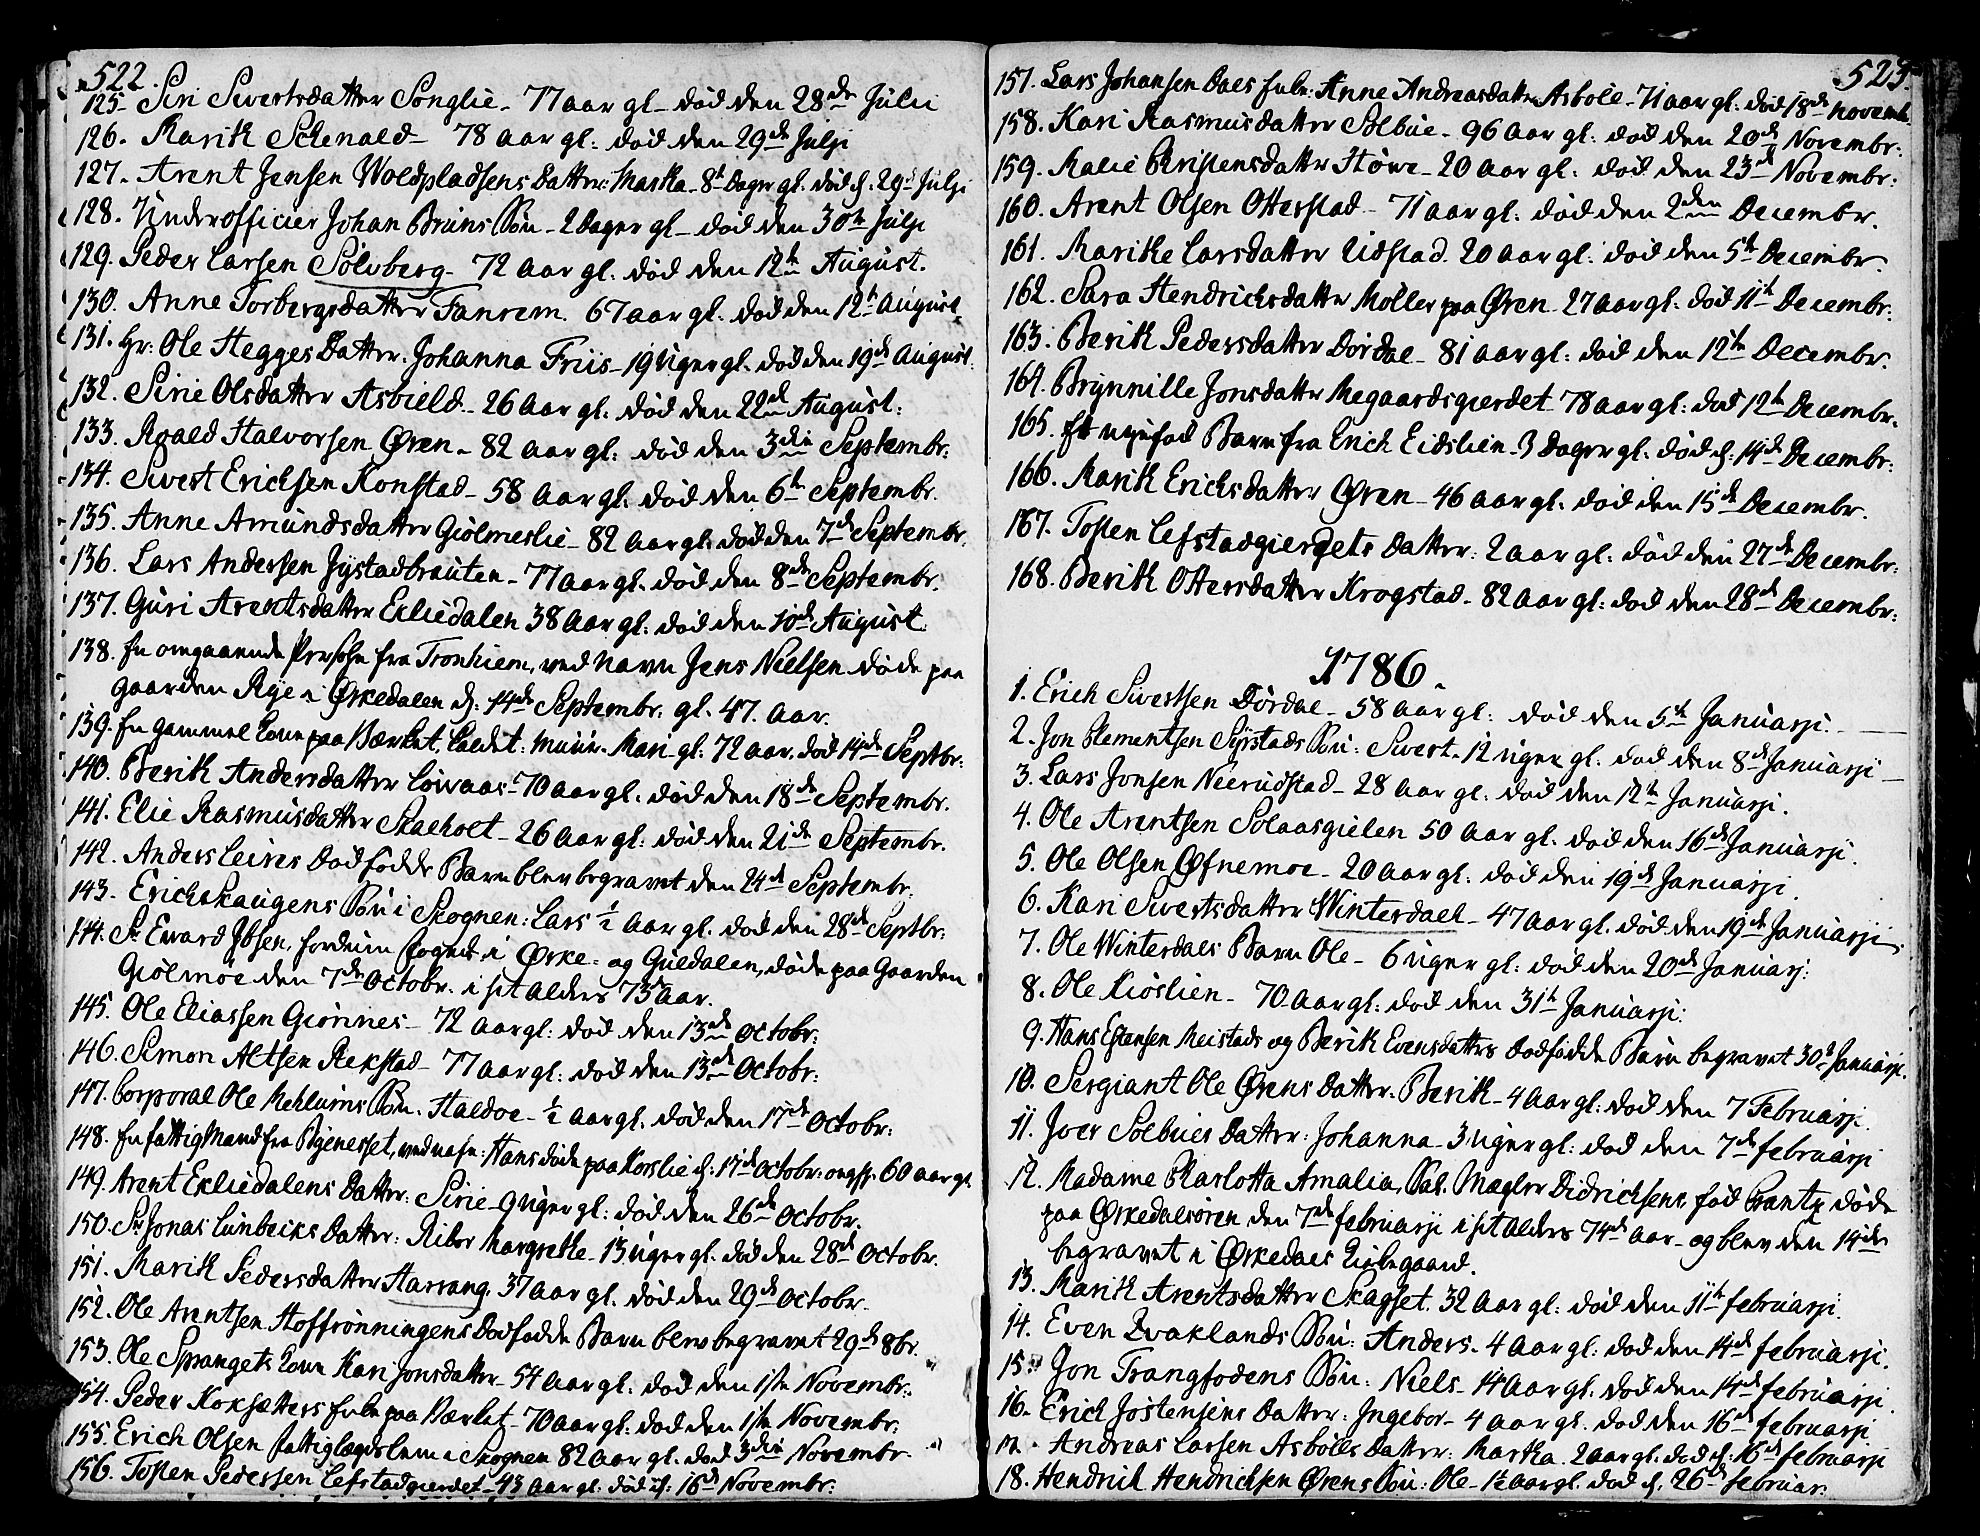 522.
125. Siri Sivertsdatter Songlie - 77 aar gl - død den 28de Julii
126. Marith Schenald - 78 aar gl: død den 29de Julji
127. Arent Jensen Woldpladsens Datter: Martha - 8te Dager gl. død d: 29de Julji
128. Underofficier Johan Bruns Søn - 2 Dager gl - død den 30te Julji
129. Peder Larsen Sølvberg - 72 aar gl: død den 12te August.
130. Anne Torbergsdatter Fanrem. 67 aar gl. død den 12te August.
131. Hr: Ole Hegges Datter: Johanna Friis - 19 Uger gl. død den 19de August.
132. Sirie Olsdatter Asbield - 26 aar gl. død den 22de August.
133. Roald Halvorsen Øren - 82 aar gl: død den 3die Septembr:
134. Sivert Erichsen Konstad - 58 aar gl. død den 6te Septembr.
135. Anne Amundsdatter Giølmeslie - 82 aar gl: død den 7de Septembr.
136. Lars Andersen Jystadbrauten - 77 aar gl. død den 8de Septembr.
137. Guri Arentsdatter Ecliedalen 38 aar gl: død den 10de August.
138. En omgaaende Persohn fra Tronhiem, ved Navn Jens Nielsen døde paa
Gaarden Rye i Ørkedalen d: 14de Septembr. gl. 47. aar.
139. En gammel Kone paa Værket, kaldet: Muur-Mari gl: 72 aar. død 14de Septbr:
140. Berith Andersdatter Løivaas - 70 aar gl. død den 18de Septembr.
141. Elie Rasmusdatter Skaeholt - 26 aar gl: død den 21de Septembr.
142. Anders Leires Dødfødde Barn blev begravet den 24de Septembr.
143. Erich Skaugens Søn i Skognen: Lars 1/2 aar gl. død den 28de Septbr:
144. Sr. Eward Ibsen, fordum Foged i Ørke- og Guldalen, døde paa Gaarden
Giølmoe den 7de Octobr. i sit Alders 73 aar.
145. Ole Eliassen Giønnes - 72 aar gl: død den 13de Octobr:
146. Simon Altsen Rekstad - 77 aar gl: død den 13de Octobr:
147. Corporal Ole Mehlums Søn. Haldoe - 1/2 aar gl. død den 17de Octobr:
148. En fattig Mand fra Byenesset, ved nafn: Hans døde paa Korslie d: 17de Octobr: ongf. 60 aar gl.
149. Arent Ecliedalens Datter: Sirie - 9 Uger gl: død den 26de Octobr.
150. Sr. Jonas Lunbecks Datter: Riber Margrethe - 13 Uger gl. død den 28de Octobr.
151. Marith Pedersdatter Harrang. 37 aar gl. død den 29de Octobr.
152. Ole Arentsen Hoffrønningens Dødfødde Barn blev begravet 29de 8br.
153. Ole Sprangets Kone Kari Jonsdatter - 54 aar gl: død den 1ste Novembr.
154. Peder Koksætters Enke paa Værket - 70 aar gl: død den 1ste Novembr.
155. Erich Olsen fattig lægdslem i Skognen 82 aar gl. død 3die Novembr.
156. Tosten Pedersen Lefstadgierdet - 43 aar gl: død d: 16de Novembr.
523.
157. Lars Johansen Daes Enke: Anne Andreasdatter Asbøll - 71 aar gl: død 18de Novemb.
158. Kari Rasmusdatter Solbue - 96 aar gl: død den 20de Novembr:
159. Malie Christensdatter Høwe - 20 aar gl: død den 23de Novembr:
160. Arent Olsen Otterstad - 71 aar gl: død den 2den Decembr.
161. Marithe Larsdatter Uistad. 20 aar gl: død den 5te Decembr.
162. Sara Hendrichsdatter Møller paa Øren - 27 aar gl: død 11te Decembr:
163. Berith Pedersdatter Dørdal - 81 aar gl: død den 12te Decembr.
164. Brynnille Jonsdatter Megaardsgierdet - 78 aar gl: død 12te Decembr.
165. Et nyefød Barn fra Erich Eidslien - 3 Dager gl. død d: 14de Decembr:
166. Marith Erichsdatter Øren - 46 aar gl: død den 15de Decembr.
167. Tosten Lefstadgierdets Datter: 2 aar gl: død den 27de Decembr:
168. Berith Ottersdatter Krogstad - 82 aar gl: død den 28de Decembr:
1786.
1. Erich Sivertsen Dørdal - 58 aar gl: død den 5te Januarji.
2. Jon Clementsen Syrstads Søn: Sivert - 12 Uger gl. død den 8de Januarji
3. Lars Jonsen Neerudstad - 28 aar gl: død den 12te Januarji.
4. Ole Arentsen Solaasgielen 50 aar gl. død den 16de Januarji.
5. Ole Olsen Øfnemoe - 20 aar gl: død den 19de Januarji.
6. Kari Sivertsdatter Winterdael - 47 aar gl. død den 19de Januarji.
7. Ole Winterdals Barn Ole - 6 Uger gl: død den 20de Januarj:
8. Ole Kiøslien - 70 aar gl: død den 31te Januarji:
9. Hans Estensen Meistads og Berith Evensdatters Dødfødde Barn begravet 30te Januarji.
10. Sergiant Ole Ørens Datter: Berith - 4 aar gl: død den 7 Februarji.
11. Joer Solbues Datter: Johanna - 3 Uger gl: død den 7de Februarji
12. Madame Charlotta Amalia, Sal. Mægler Didrichsens, fød Crantz døde
paa Ørkedalsøren den 7de Februarji i sit Alders 74de aar - og blev den 14de
begravet i Ørkedals Kirkegaard.
13. Marith Arentsdatter Skagset. 32 aar gl: død den 11te Februarji.
14. Even Evaklands Søn: Anders - 4 aar gl: død den 14de Februarji.
15. Jon Trangfodens Søn: Niels - 14 aar gl. død den 14de Februarji.
16. Erich Jostensens Datter: Ingebor - 4 aar gl. død den 16de Februarji
17. Andreas Larsen Asbølls Datter: Martha. 2 aar gl. død d: 16de Februarji
18. Hendrich Hendrichsen Ørens Søn: Ole - 1 1/2 aar gl. død d. 26de Februar.